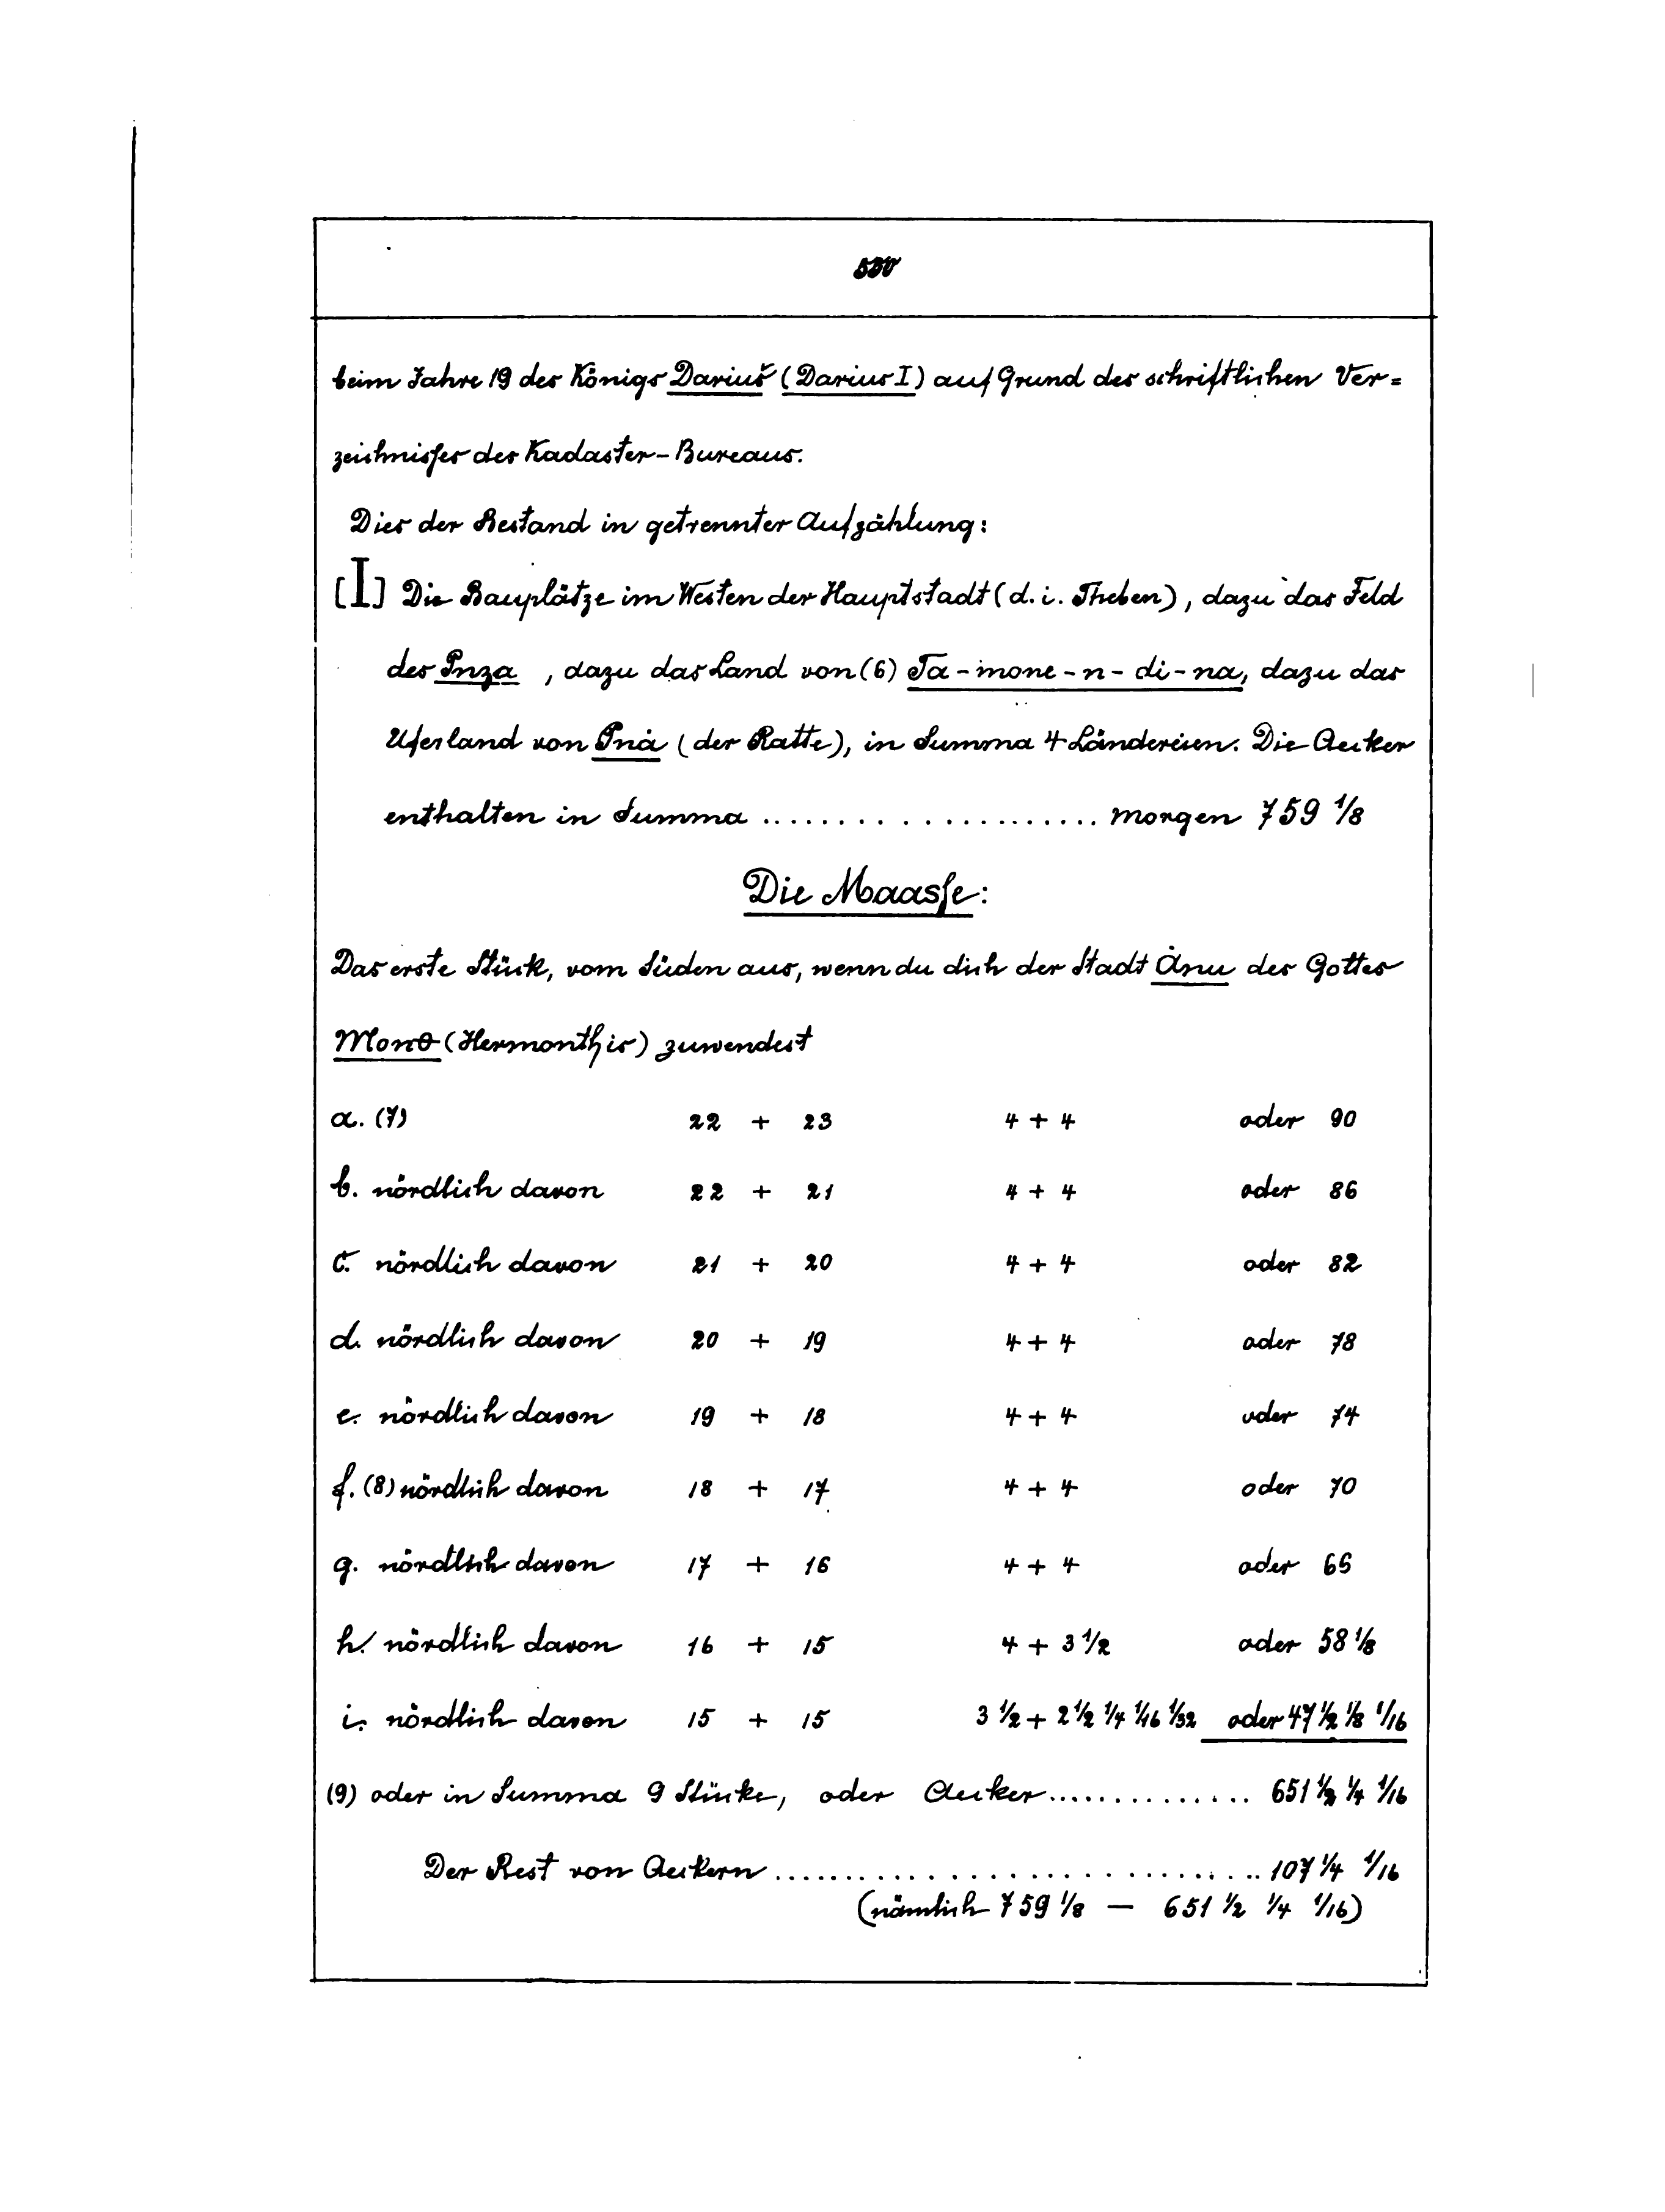 550
beim Jahre 19 des Königs Dariuš (Darius I) auf Grund des schriftlichen Ver=
zeichnisses des Kadaster-Bureaus.
Dies der Bestand in getrennter Aufzählung:
[I] Die Bauplätze im Westen der Hauptstadt (d. i. Theben), dazu das Feld
des Pnza , dazu das Land von (6) Ta-mone-n-di-na, dazu das
Uferland von Pnȧ (der Ratte), in Summa 4 Ländereien. Die Aecker
enthalten in Summa ...................... Morgen 759 1/8
Die Maasse:
Das erste Stück, vom Süden aus, wenn du dich der Stadt Ȧnu des Gottes
Monθ (Hermonthis) zuwendest
a. (7) 22 + 23 4 + 4 oder 90
b. nördlich davon 22 + 21 4 + 4 oder 86
c. nördlich davon 21 + 20 4 + 4 oder 82
d. nördlich davon 20 + 19 4 + 4 oder 78
e. nördlich davon 19 + 18 4 + 4 oder 74
f. (8) nördlich davon 18 + 17 4 + 4 oder 70
g. nördlich davon 17 + 16 4 + 4 oder 65
h. nördlich davon 16 + 15 4 + 3 1/2 oder 58 1/8
i. nördlich davon 15 + 15 3 1/2 + 2 1/2 1/4 1/16 1/32 oder 47 1/2 1/8 1/16
(9) oder in Summa 9 Stücke, oder Aecker.............. 651 1/2 1/4 1/16
Der Rest von Aeckern ................................ 107 1/4 1/16
(nämlich 759 1/8 — 651 1/2 1/4 1/16)